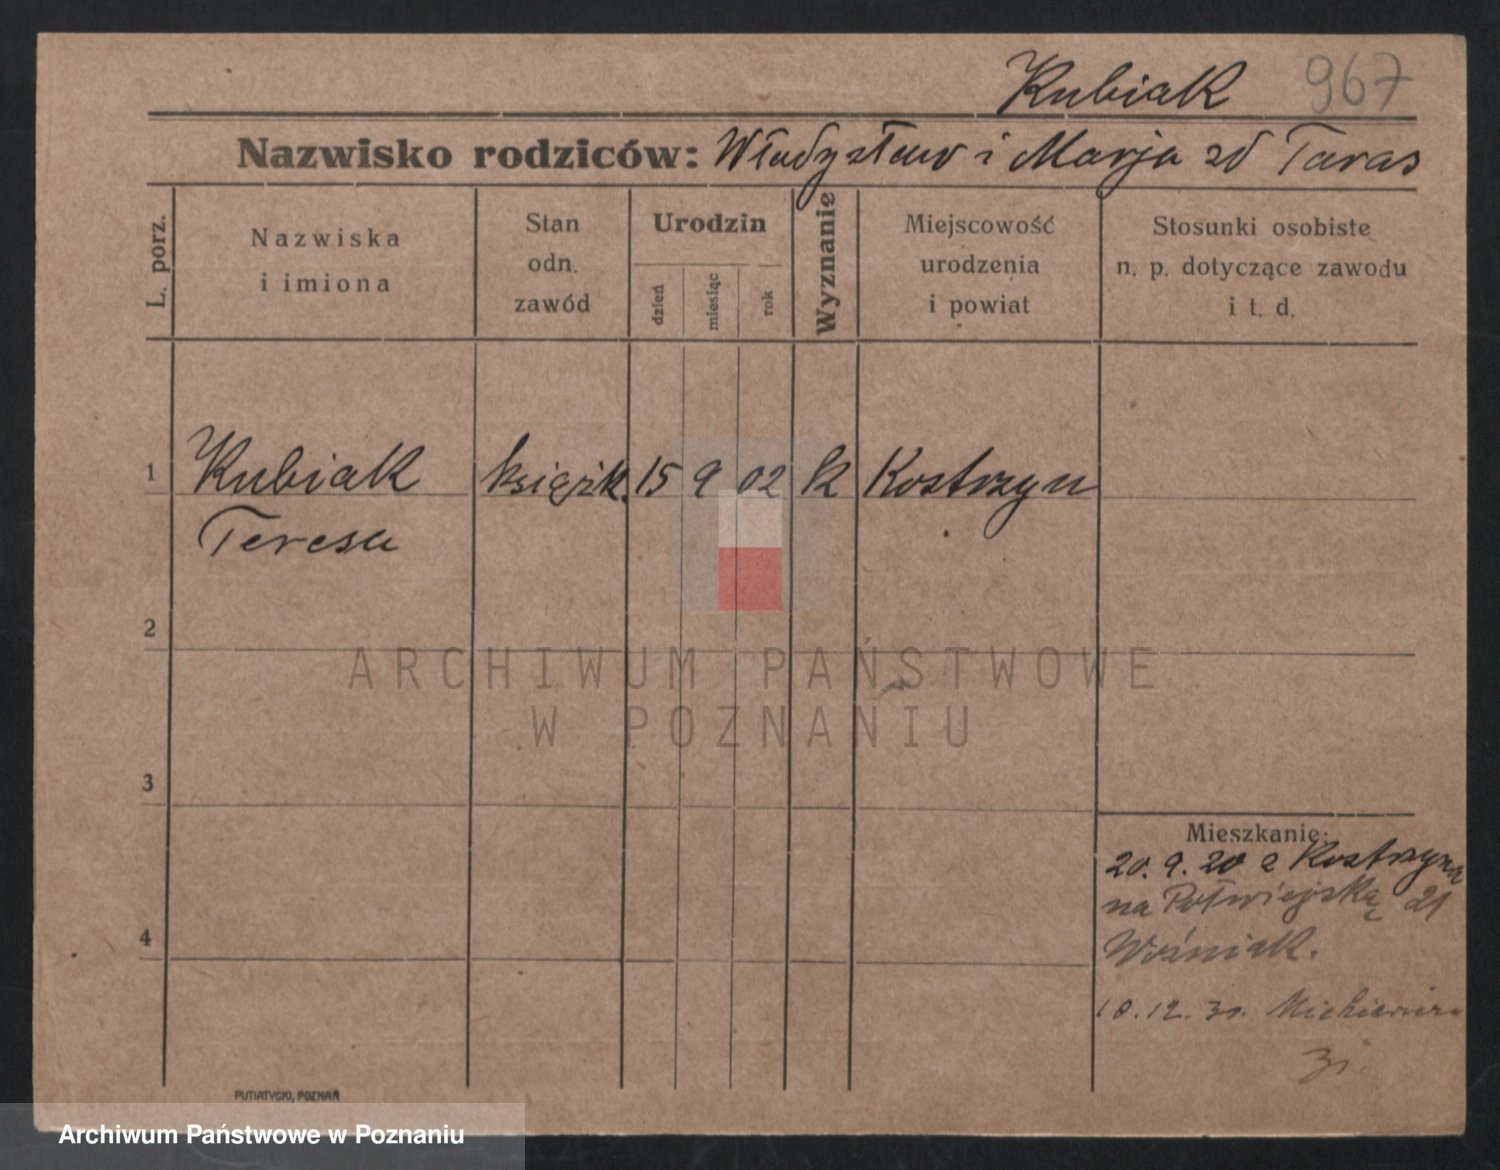 Kubiak 967
Nazwisko rodziców: Władysław i Marja zd Taras
L. porz.
Nazwiska
i imiona
Stan
odn.
zawód
Urodzin
dzień
miesiąc
rok
Wyznanie
Miejscowość
urodzenia
i powiat
Stosunki osobiste
n. p. dotyczące zawodu
i t. d.
1 Kubiak książk. 15 9 02 k Kostrzyn
Teresa
2
ARCHIWUM PAŃSTWOWE
W POZNANIU
3
Mieszkanie:
20.9.20 z Kostrzyna
na Półwiejską 21
4
Woźniak.
10.12.30.
PUTIATYCKI, POZNAŃ
Archiwum Państwowe w Poznaniu